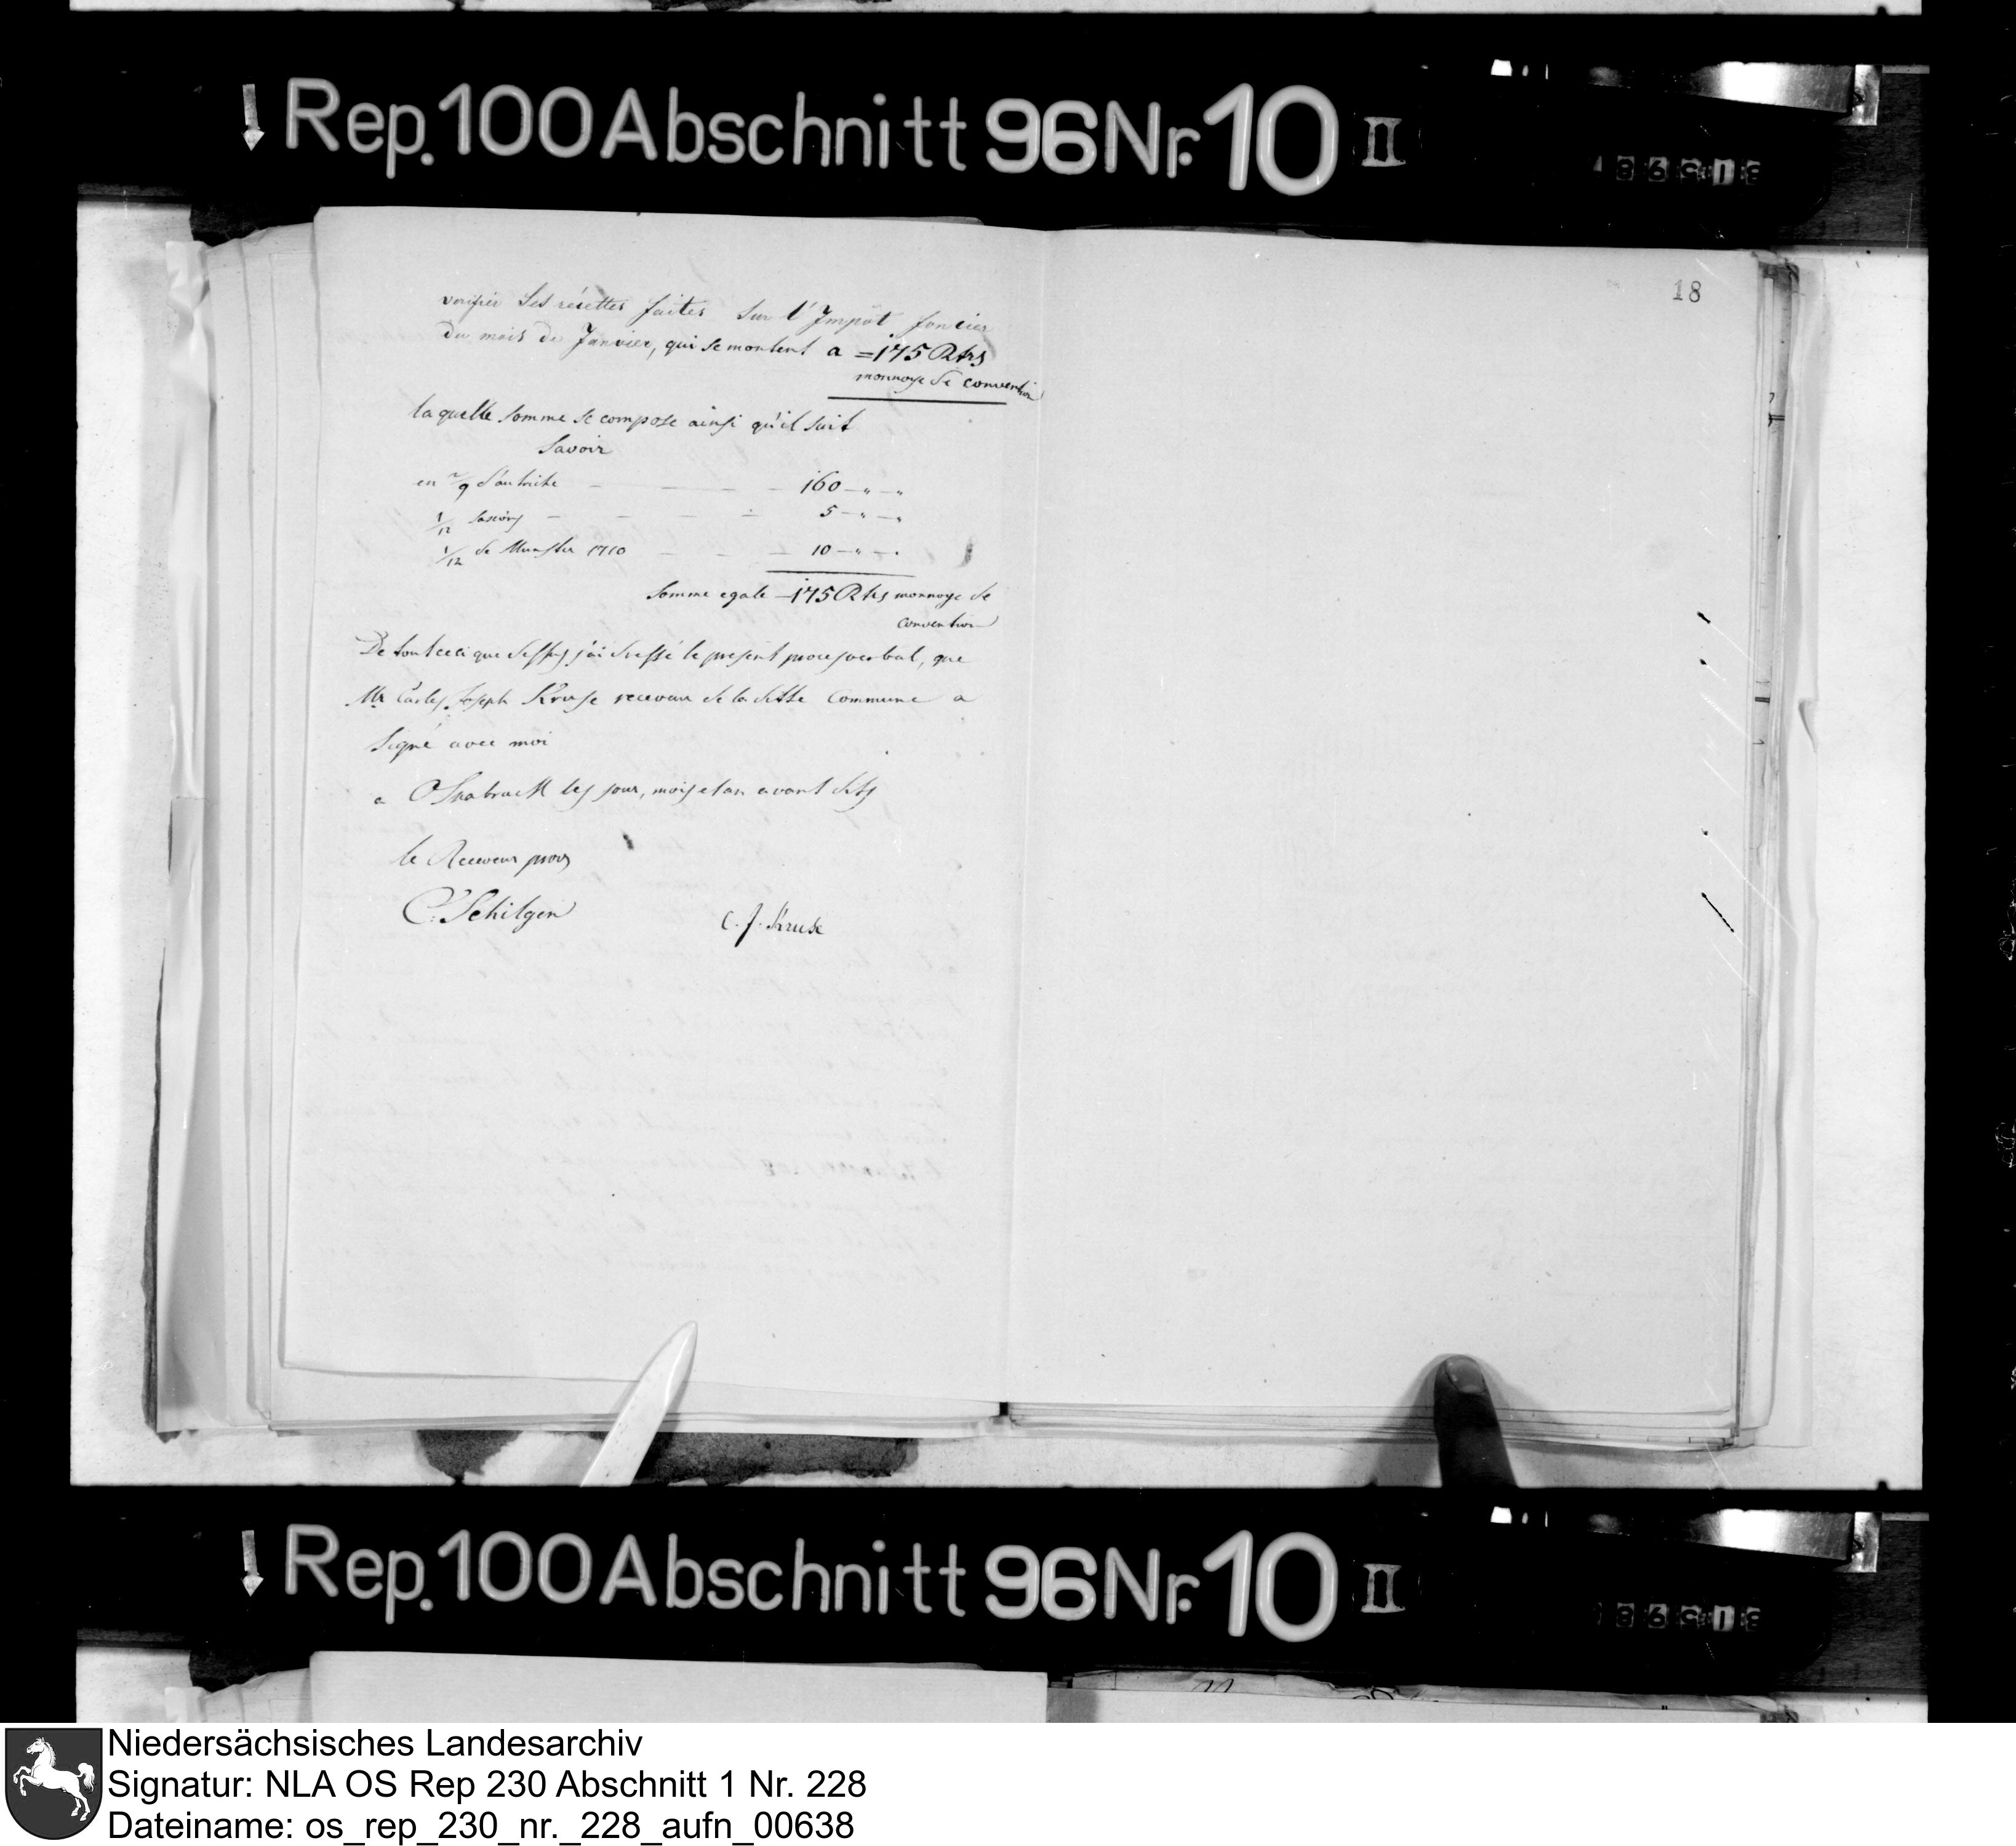 Rep. 100 Abschnitt 96 Nr. 10 II
18
verifier les récettes faites sur l'Impôt foncier
du mois de Janvier, qui se montent a = 175 Rtrs
monnoye de convention
laquelle somme se compose ainsi qu'il suit
Savoir
en 2/9 d'autriche — — — 160 — " — "
1/12 — — — — 5 — " — "
1/12 de Munster 1710 — — — 10 — " — "
Somme egale — 175 Rtrs monnoye de
convention
De tout ceci que dessus j'ai dressé le present procesverbal, que
Mr Carles Joseph Kruse receveur de la ditte Commune a
signé avec moi
a Osnabruck les jour, mois et an avant dits
le Receveur prov
C. Schilgen
C. J. Kruse
Rep. 100 Abschnitt 96 Nr. 10 II
Niedersächsisches Landesarchiv
Signatur: NLA OS Rep 230 Abschnitt 1 Nr. 228
Dateiname: os_rep_230_nr._228_aufn_00638